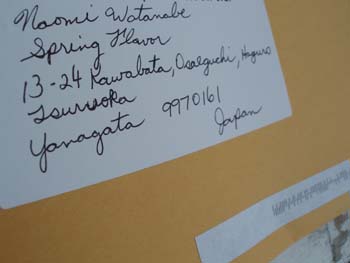 Naomi Watanabe
Spring Flavor
13-24 Kawabata, Osalguchi, Haguro
Tsuruoka
Yamagata 9970161
Japan